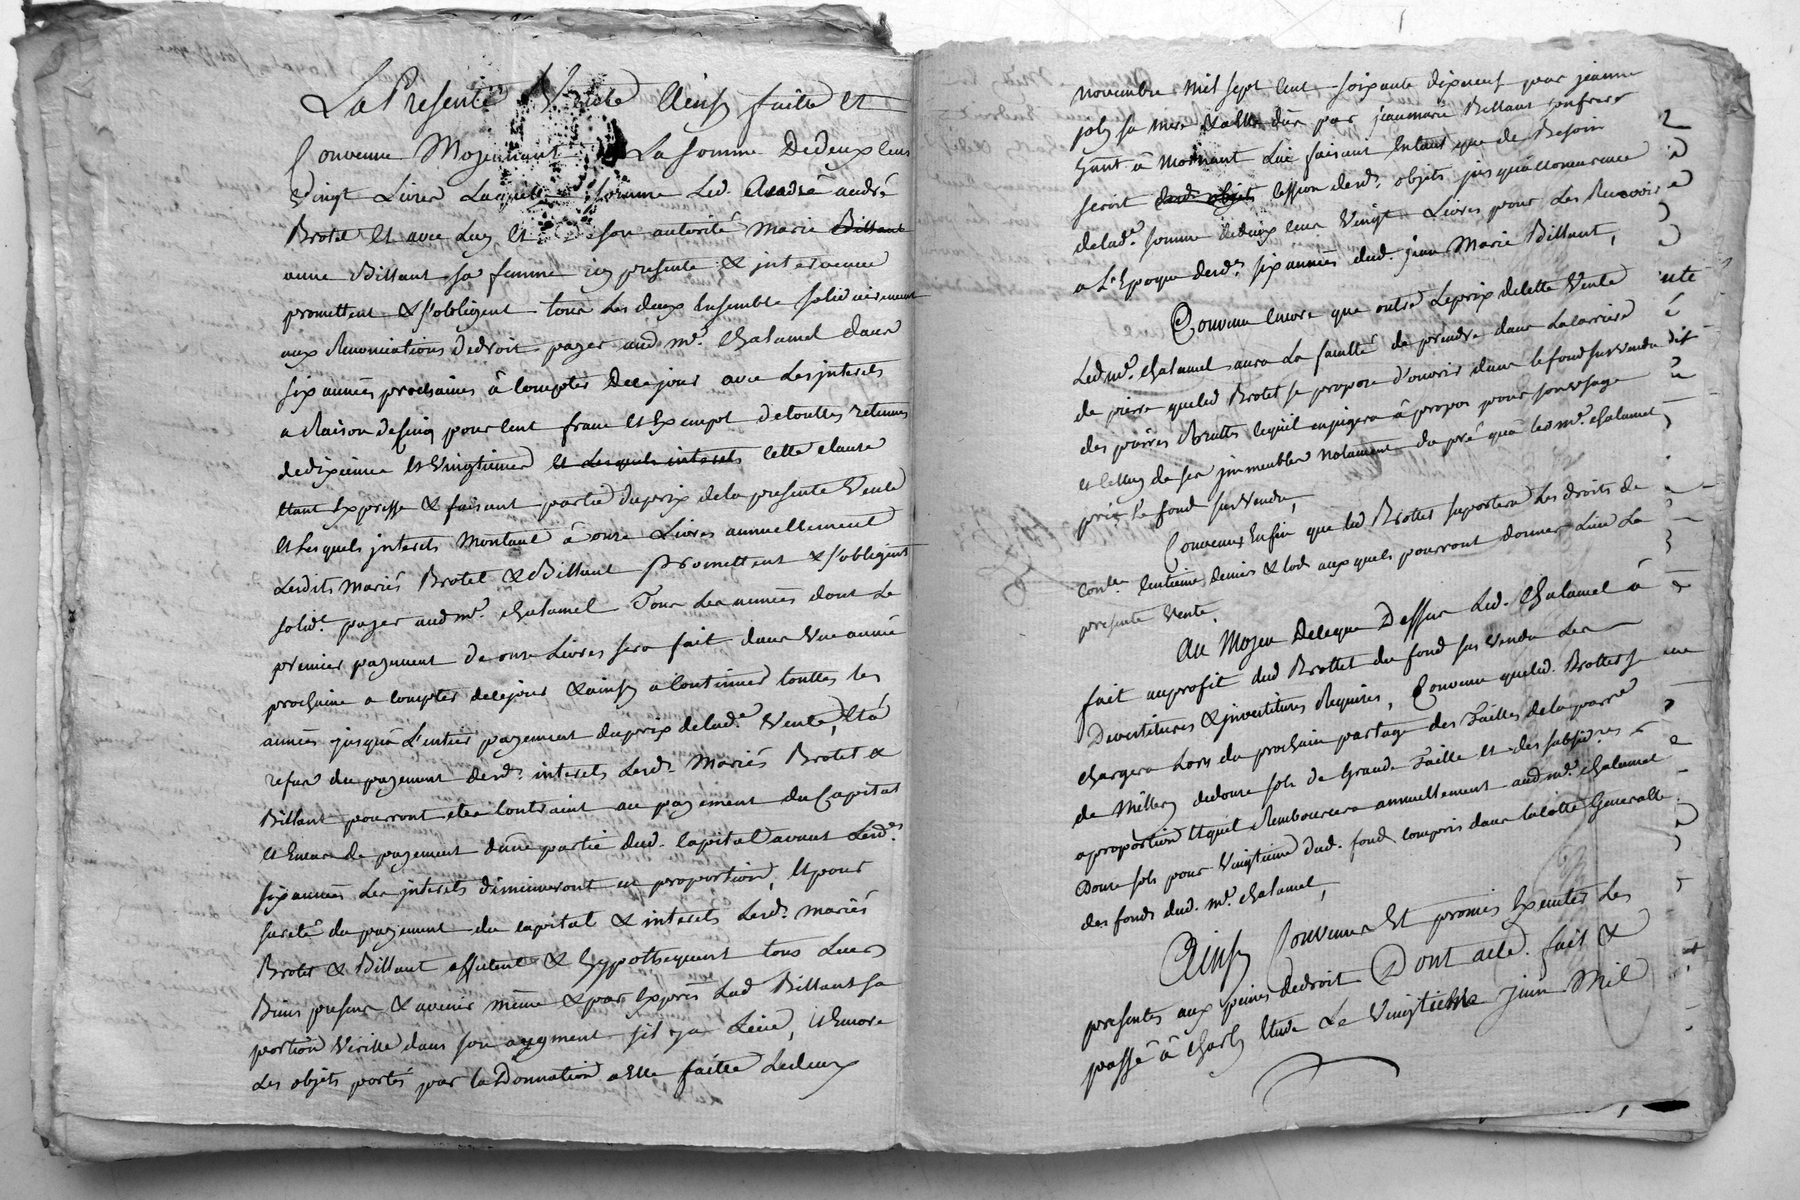 La Presente Vente Ainsy faitte et
Convenue Moyennant La somme Dedeux Cens
Vingt Livres Laquelle somme Led. André
Brotet et avec Luy et de son autorité Marie
anne Billant sa femme icy presente & intervenue
promettent & s'obligent tous Les deux Ensemble solidairement
aux Renonciations Dedroit payer aud mr. Chalamel dans
six années prochaines à Compter De ce jour avec Les jnterets
a Raison de Cinq pour Cent franc et Exempt de touttes retenues
de dixieme et Vingtieme et Lesquels interets Cette Clause
Etant Expresse & faisant partie du prix de la presente Vente
et Lesquels jnterets Montant à onze Livres annuellement
Lesdits Mariés Brotet & Billant promettent & s'obligent
solidt. payer aud mr. Chalamel Tous Les années dont Le
premier payement de onze Livres sera fait dans Une année
prochaine a Compter de ce jour & ainsy a Continuer touttes les
années jusqu'à L'entier payement du prix de lade. Vente, Et à
refus du payement desds. interets Lesds. Mariés Brotet &
Billant pourront etre Contraint au payement du Capital
et En cas de payement d'une partie dud. Capital avant Lesds.
six années Les jnterets diminueront en proportion, Et pour
sureté du payement du capital & interets Lesds. mariés
Brotet & Billant affectent & hyppothequent tous Leurs
Biens presens & avenir même & par Exprès Lad Billant sa
portion Virille dans son augment s'il y a Lieu, et Encore
Les objets portés par la Donnation a Elle faitte Le deux
novembre Mil sept Cent soixante dixneuf par jeanne
joly sa mere & a Elle dûs par jeanmarie Billant son frere
à Mornant Lui faisant En tant que de Besoin
seroit Cession desds. objets jusqu'à Concurrence
delade. somme de deux Cens Vingt Livres pour Les Recevoir
a L'Epoque desds. six années dud. jean Marie Billant,
Convenu Encore que outre Le prix de Cette Vente
Led mr. Chalamel aura La faculté de prendre dans La Carriere
de pierre que led Brotet se propose d'ouvrir dans le fond sus Vendu
des pierres Bruttes Ce qu'il enjugera à propos pour son usage
et Celluy de ses jmmeubles Notament du pré qu'à led mr. Chalamel
près le fond sus Vendu,
Convenu Enfin que led Brotet suportera Les droits de
Conle. Centieme denier & lods aux quels pourront donner Lieu La
presente Vente.
Au Moyen De ce que Dessus Led. Chalamel à
fait au profit dud Brottet du fond sus Vendu Les
Devettitures & jnvettitures Requises, Convenu que led. Brottet se
chargera Lors du prochain partage des Tailles de la parre.
de Millery de douze sols de Grande Taille et des subsides
a proportion Et qu'il Remboursera annuellement aud mr. Chalamel
Douze sols pour Vingtieme dud. fond Compris dans la Cotte Generalle
des fonds dud. mr. Chalamel,
Ainsy Convenu Et promis Executer Les
presentes aux peines de droit Dont acte. fait &
passé à Charly Etude Le Vingtieme juin Mil